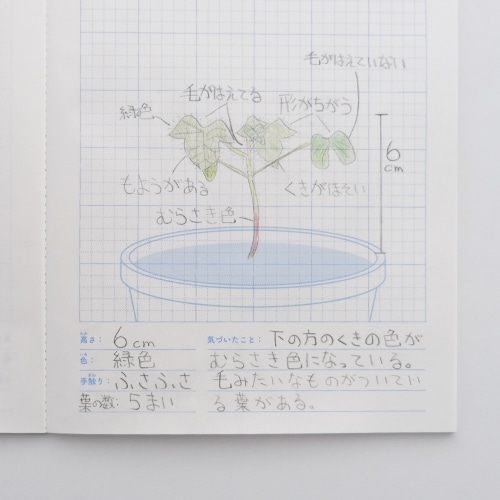 毛がはえていない
毛がはえてる
形がちがう
緑色
6
cm
もようがある
くきがほそい
むらさき色
高さ: 6cm
色: 緑色
手触り: ふさふさ
葉の数: 5まい
気づいたこと: 下の方のくきの色が
むらさき色になっている。
毛みたいなものがついてい
る葉がある。